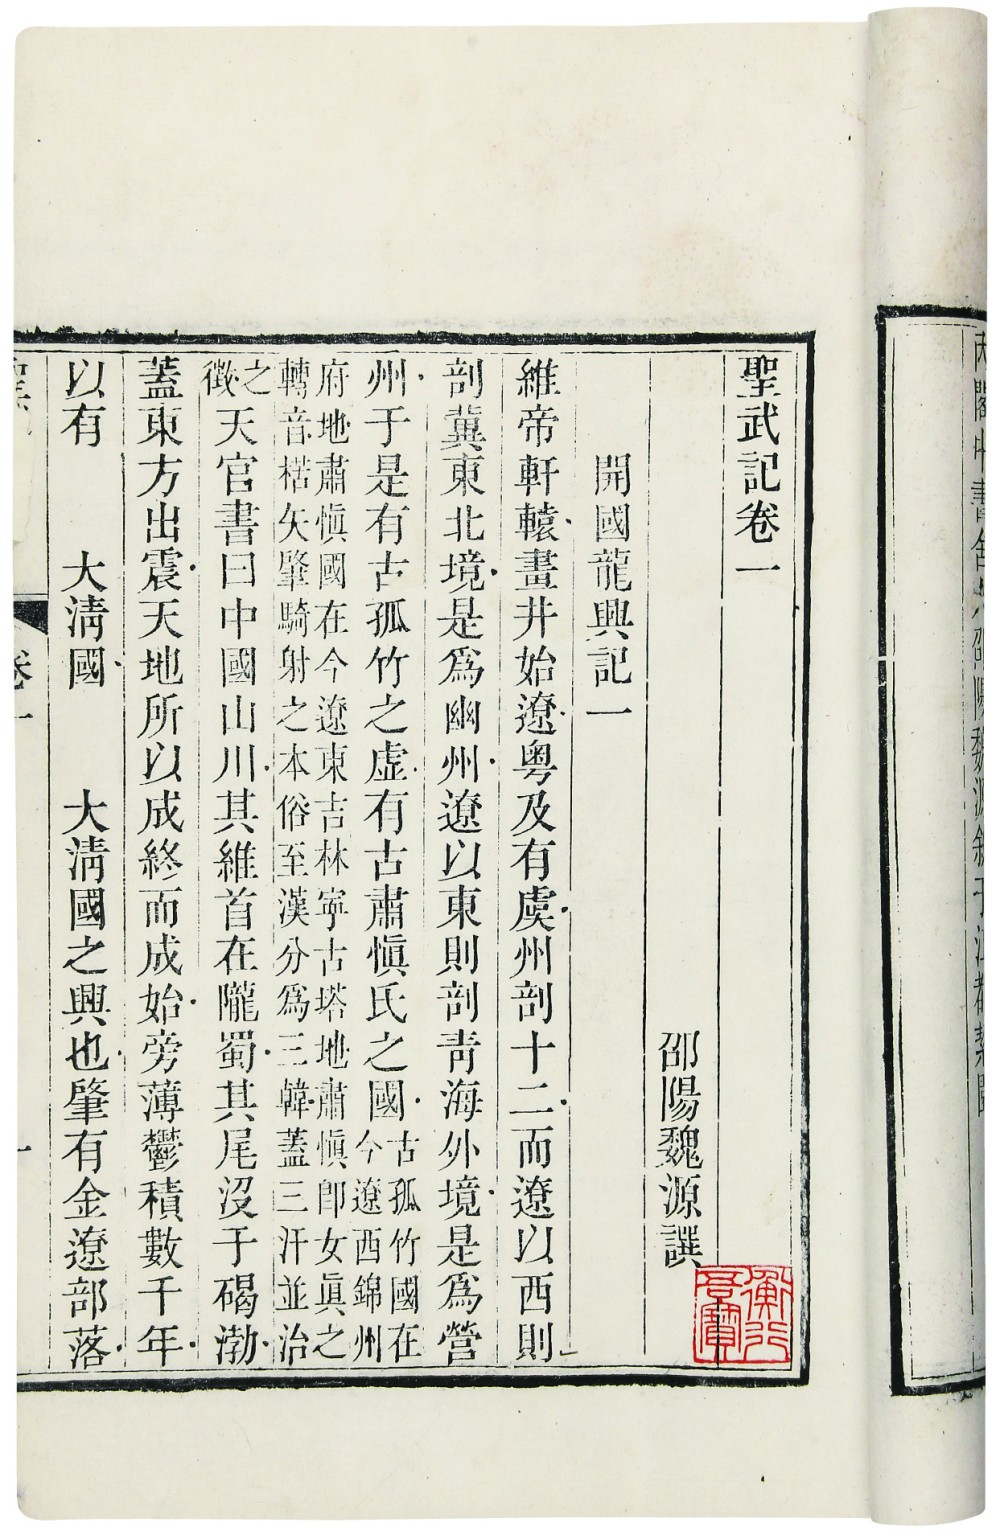 內閣中書舍人邵陽魏源敘于江都絜園
聖武記卷一
邵陽魏源譔
開國龍興記一
維帝軒轅畫井始遼粵及有虞州剖十二而遼以西則
剖冀東北境是爲幽州遼以東則剖靑海外境是爲營
州于是有古孤竹之虛有古肅愼氏之國古孤竹國在今遼西錦州
府地肅愼國在今遼東吉林寧古塔地肅愼卽女眞之
轉音楛矢肇騎射之本俗至漢分爲三韓蓋三汗並治
之徵天官書曰中國山川其維首在隴蜀其尾沒于碣渤
蓋東方出震天地所以成終而成始旁薄鬱積數千年
以有 大淸國 大淸國之興也肇有金遼部落
卷一
一
衡行吾寶